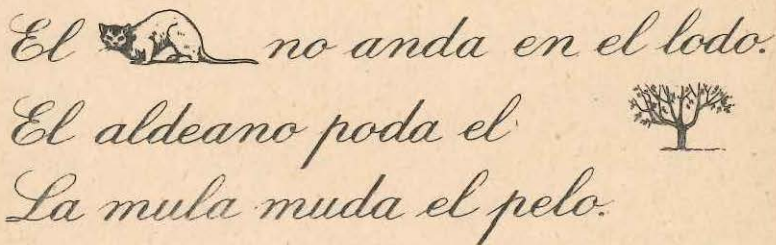 El no anda en el lodo.
El aldeano poda el
La mula muda el pelo.